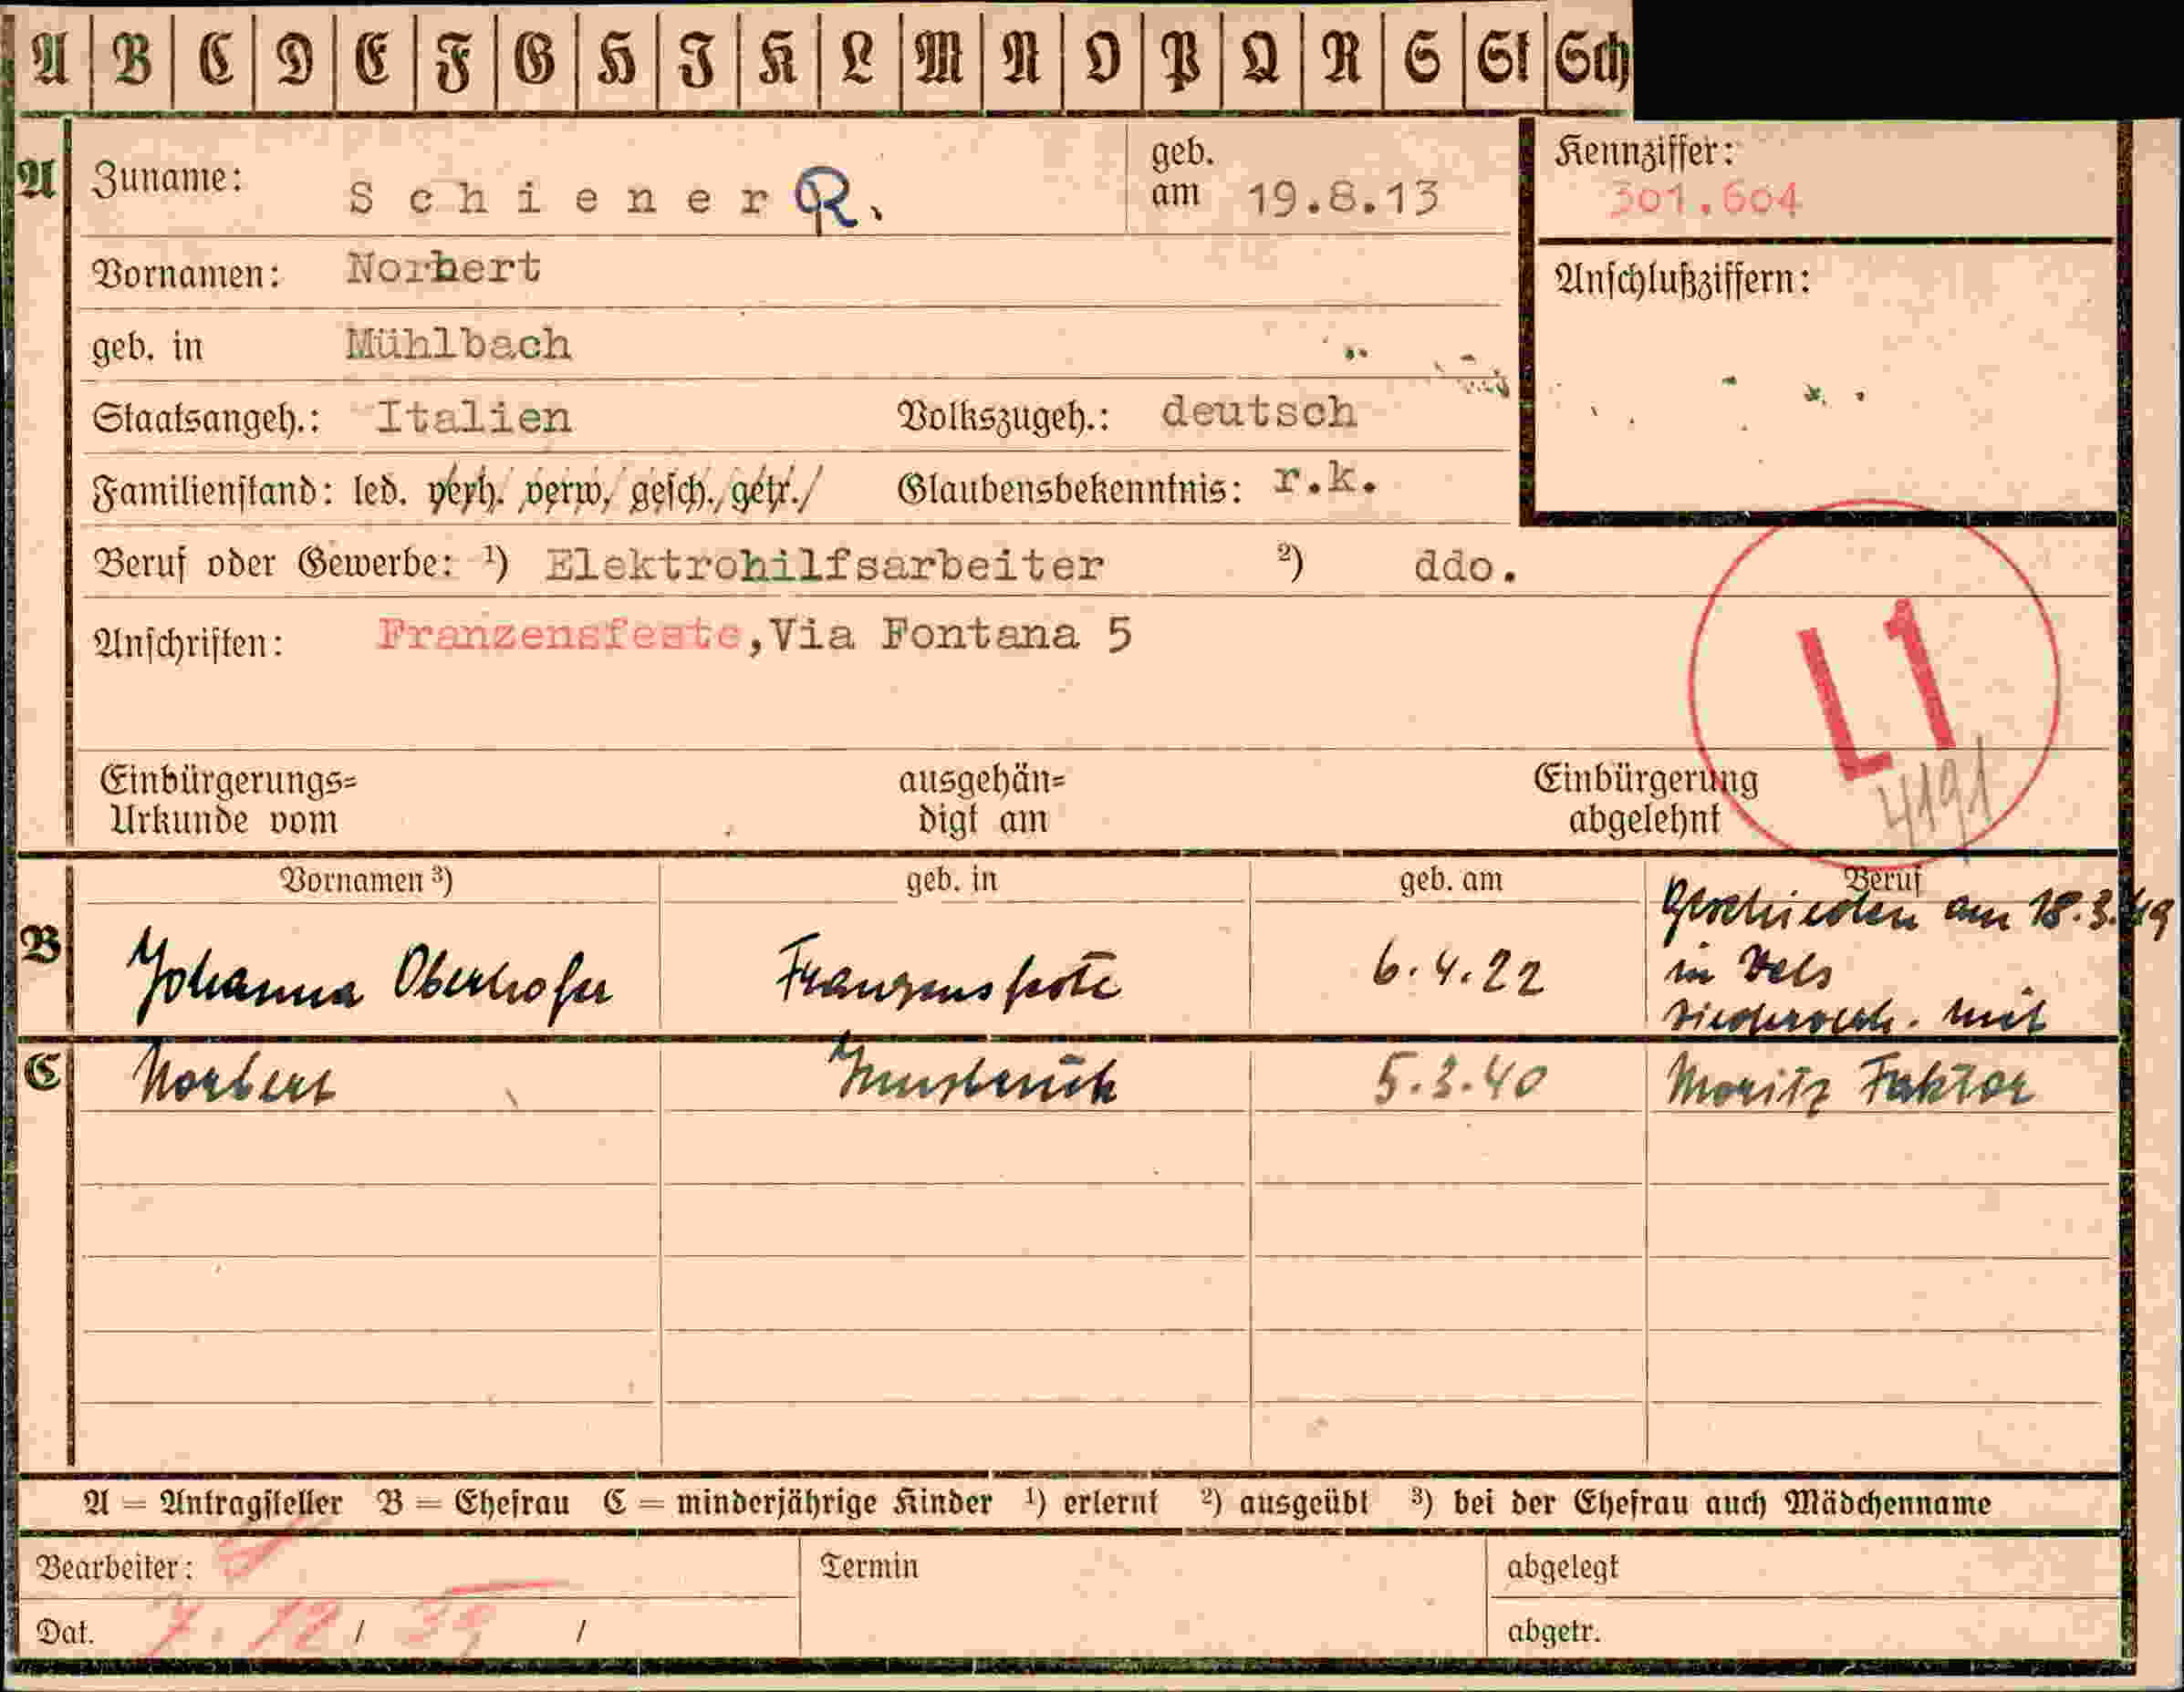 A B C D E F G H I K L M N O P Q R S St Sch
A Zuname: Schiener R. geb. am 19.8.13 Kennziffer: 301.604
Vornamen: Norbert Anschlußziffern:
geb. in Mühlbach
Staatsangeh.: Italien Volkszugeh.: deutsch
Familienstand: led. verh. verw. gesch. getr. Glaubensbekenntnis: r.k.
Beruf oder Gewerbe: ¹) Elektrohilfsarbeiter ²) ddo.
Anschriften: Franzensfeste, Via Fontana 5
L1
4191
Einbürgerungs= ausgehän= Einbürgerung
Urkunde vom digt am abgelehnt
Vornamen ³) geb. in geb. am Beruf
Geschieden am 18.3.49
B Johanna Oberhofer Franzensfeste 6.4.22 in Wels
Wiederverh. mit
C Norbert Innsbruck 5.3.40 Moritz Faktor
A = Antragsteller B = Ehefrau C = minderjährige Kinder ¹) erlernt ²) ausgeübt ³) bei der Ehefrau auch Mädchenname
Bearbeiter: Termin abgelegt
Dat. 7.12 / 39 / abgetr.